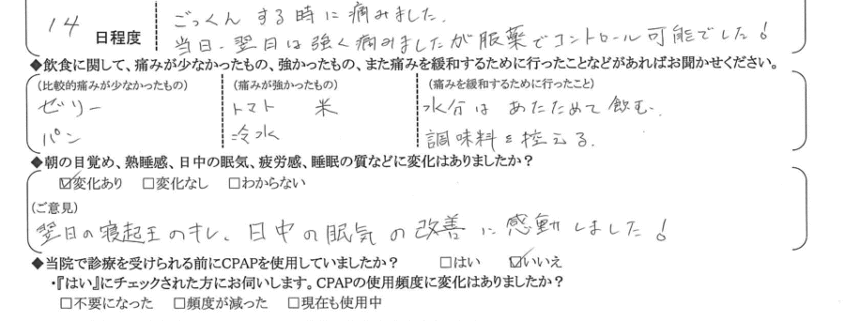 ごっくん する時に痛みました.
14 日程度
当日、翌日は強く痛みましたが服薬でコントロール可能でした!
◆飲食に関して、痛みが少なかったもの、強かったもの、また痛みを緩和するために行ったことなどがあればお聞かせください。
(比較的痛みが少なかったもの) (痛みが強かったもの) (痛みを緩和するために行ったこと)
ゼリー トマト 米 水分は あたためて飲む.
パン 冷水 調味料を控える.
◆朝の目覚め、熟睡感、日中の眠気、疲労感、睡眠の質などに変化はありましたか?
☑変化あり □変化なし □わからない
(ご意見)
翌日の寝起きのキレ、日中の眠気の改善に感動しました!
◆当院で診療を受けられる前にCPAPを使用していましたか? □はい ☑いいえ
・『はい』にチェックされた方にお伺いします。CPAPの使用頻度に変化はありましたか?
□不要になった □頻度が減った □現在も使用中